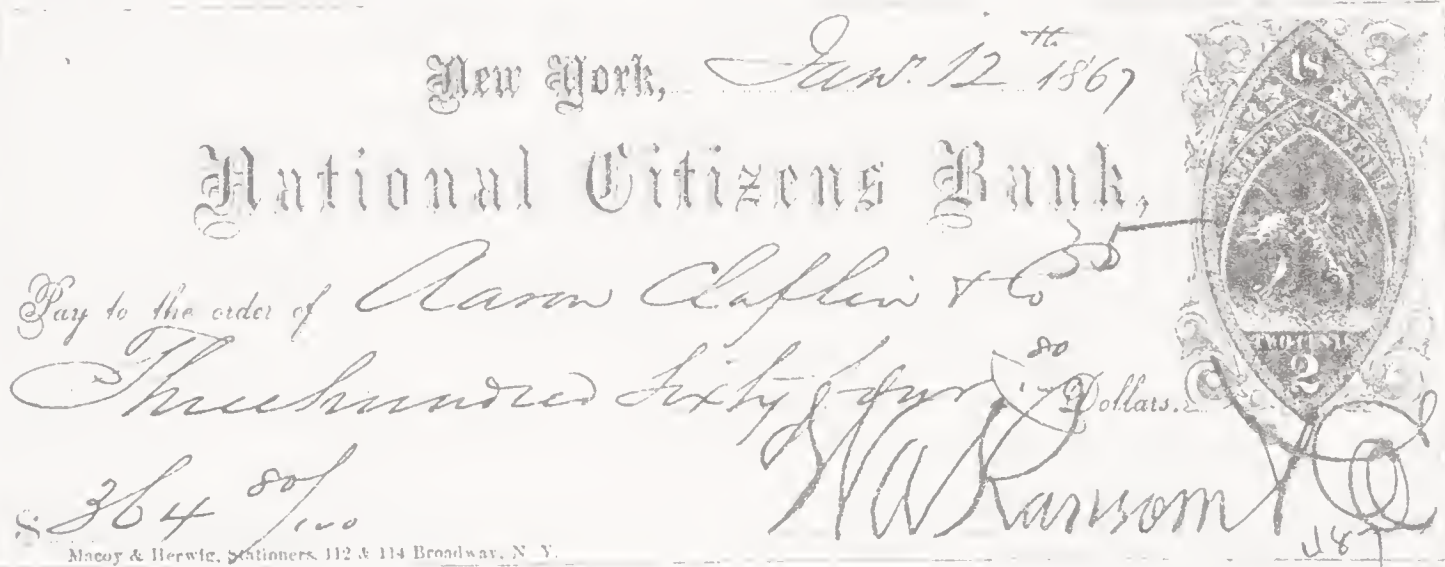 New York, Jany. 12th 1867
National Citizens Bank,
Pay to the order of Aaron Claflin & Co
Three hundred Sixty four 80/100 Dollars.
$ 364 80/100
W A Ransom & Co
Macoy & Herwig, Stationers, 112 & 114 Broadway, N. Y.
18
TWO CENTS
2